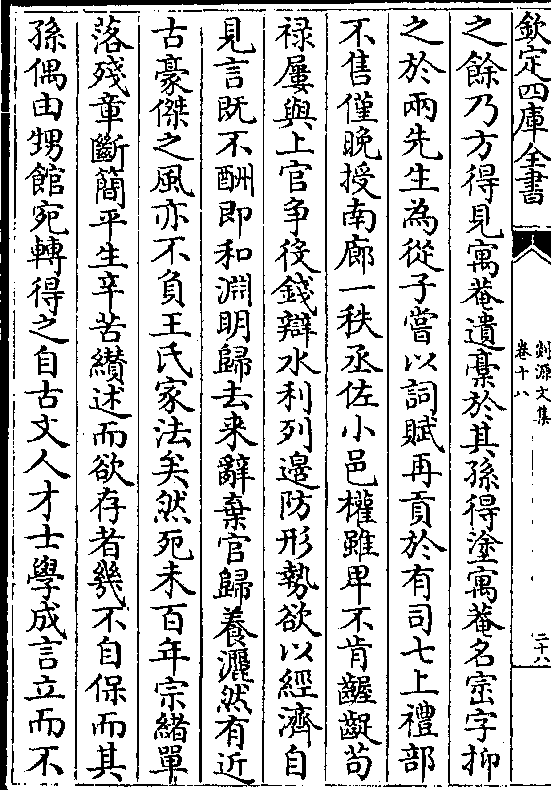 欽定四庫全書
剡源文集
卷十八
二十八
之餘乃方得見寓菴遺稾於其孫得塗寓菴名宻字抑
之於兩先生為從子嘗以詞賦再貢於有司七上禮部
不售僅晚授南廊一秩丞佐小邑權雖卑不肯齷齪茍
禄屢與上官争役錢辯水利列邉防形勢欲以經濟自
見言既不酬即和淵明歸去来辭棄官歸養灑然有近
古豪傑之風亦不負王氏家法矣然死未百年宗緒單
落殘章斷簡平生辛苦纉述而欲存者幾不自保而其
孫偶由甥館宛轉得之自古文人才士學成言立而不